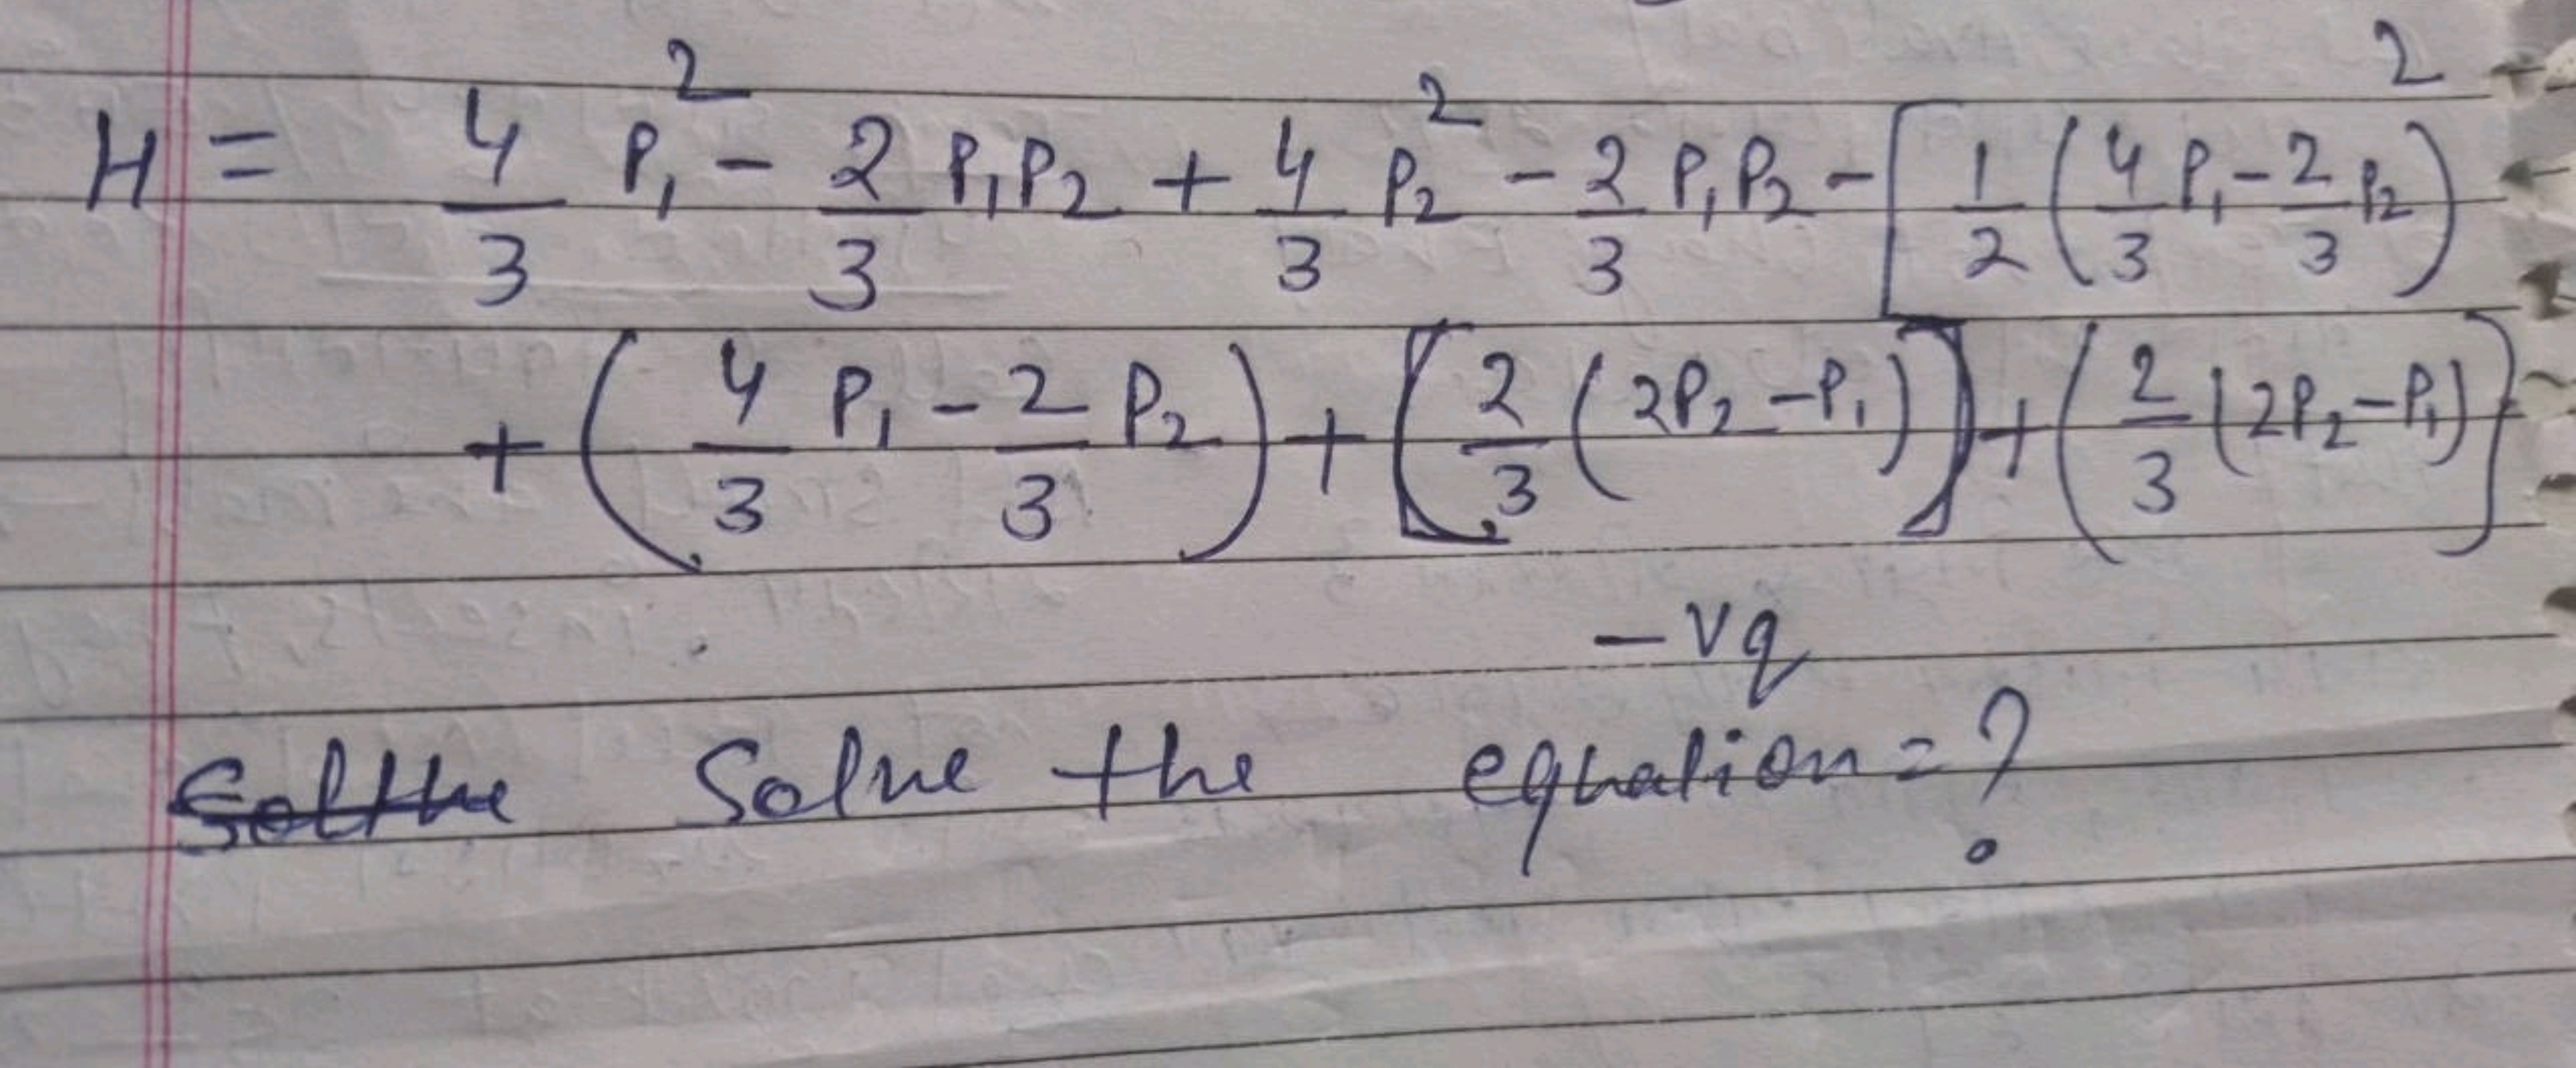 H = 4/3 P₁² - 2/3 P₁P₂ + 4/3 P₂² - 2/3 P₁P₂ - [ 1/2 ( 4/3 P₁ - 2/3 P₂ )²
+ ( 4/3 P₁ - 2/3 P₂ ) + [ 2/3 ( 2P₂ - P₁ ) ] + ( 2/3 ( 2P₂ - P₁ ) }
- vq
Solve the equation = ?